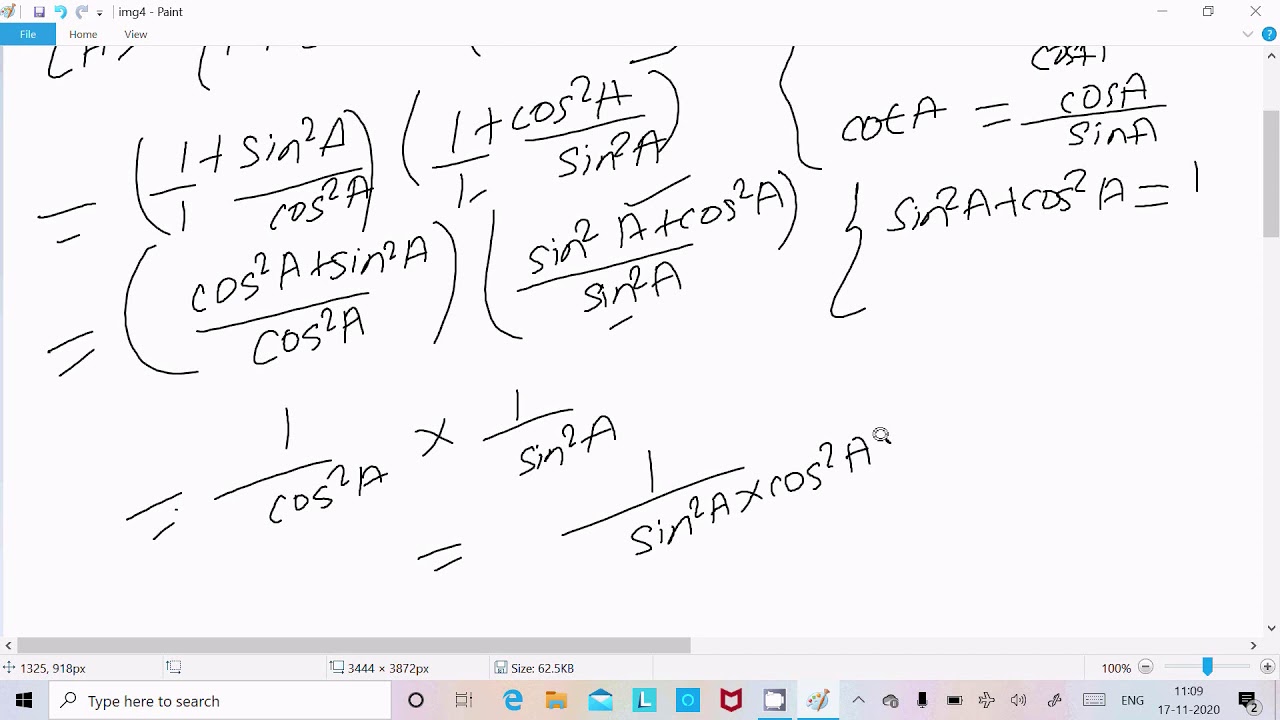 img4 - Paint
File Home View
cot A = cosA / sinA
= (1/1 + sin²A / cos²A) (1/1 + cos²A / sin²A)
{ sin²A + cos²A = 1
= (cos²A + sin²A / cos²A) (sin²A + cos²A / sin²A)
= 1 / cos²A × 1 / sin²A
= 1 / sin²A × cos²A
1325, 918px 3444 × 3872px Size: 62.5KB 100%
Type here to search
ENG 11:09
17-11-2020 2